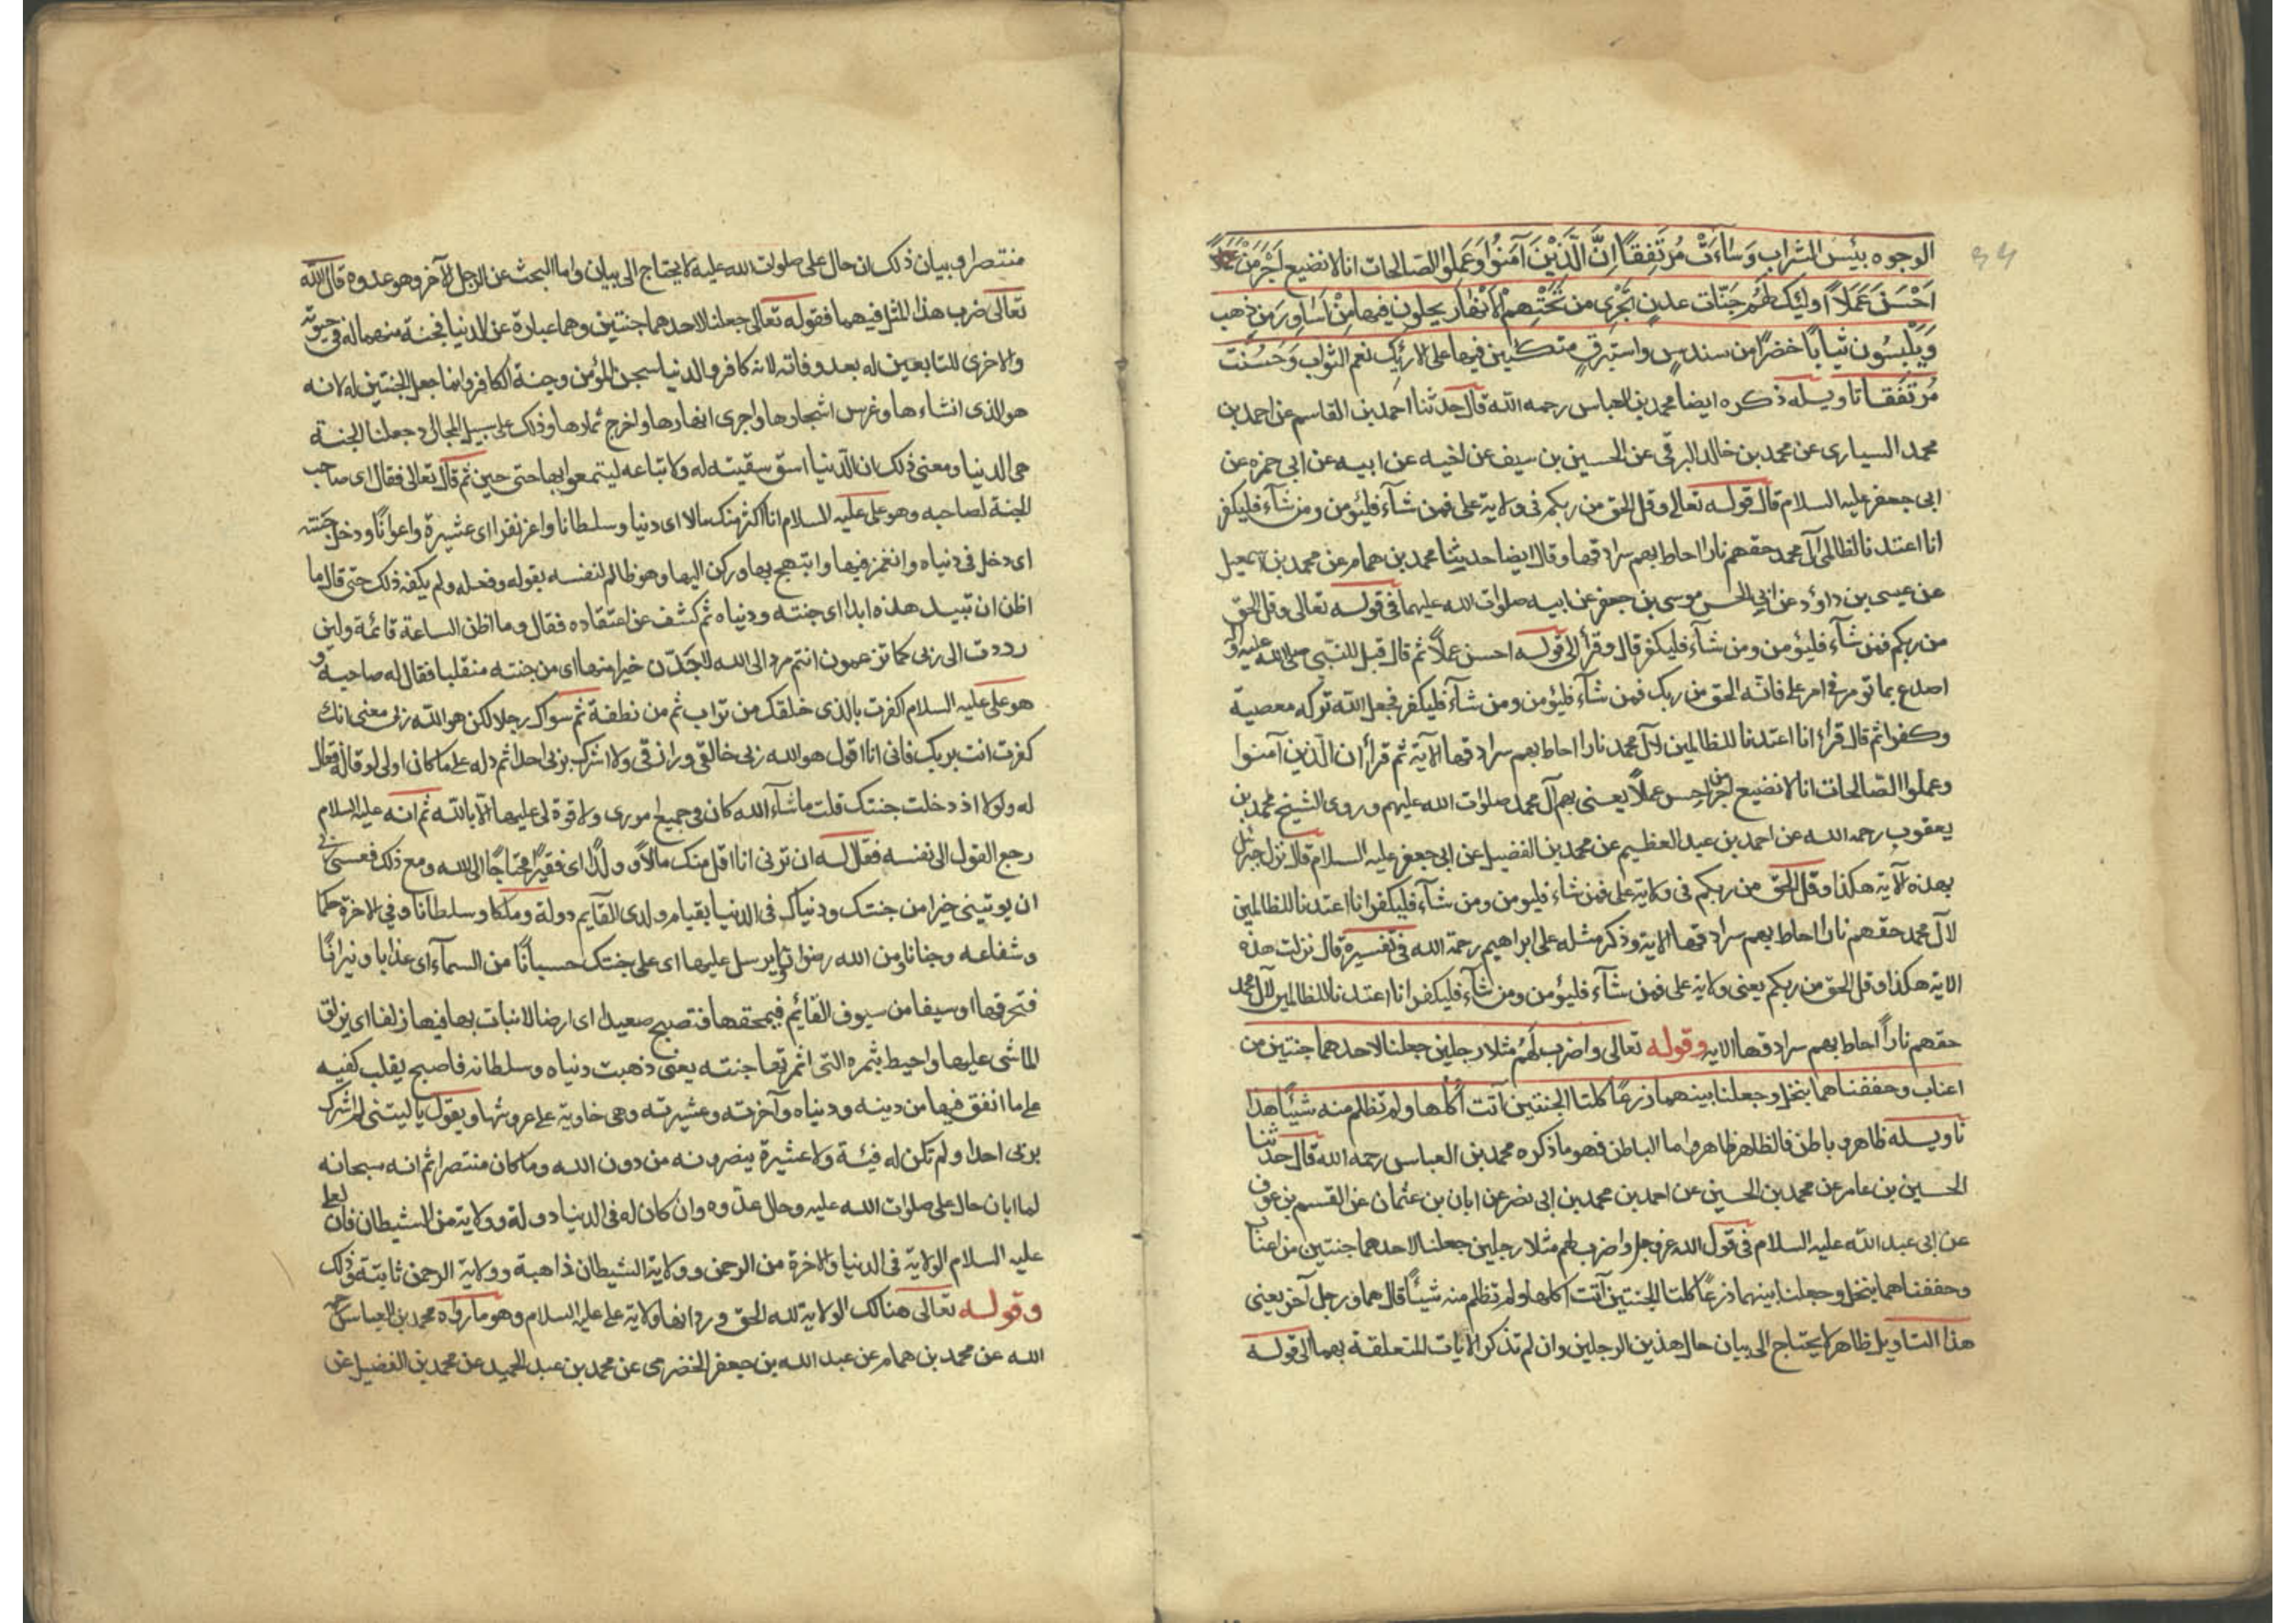 الوجوه بئس الشراب وَسَاءَتْ مُرتَفِقًا اِنَّ الَّذِيْنَ آمَنُوا وَعَمِلُوا الصّالحات انا لا نضيع اَجْرَ مَنْ
اَحْسَنَ عَمَلًا اُولئِكَ لَهُم جنّات عدنٍ تجْرِى من تَحْتِهمْ الاَنْهَار يحلون فيها مِنْ اَسَاوِرَ مِن ذهب
وَيَلْبِسُون ثيابًا خضرًا من سندسٍ واستبرقٍ متكئين فيها على الارئِكِ نعم الثواب وَحَسُنَتْ
مُرتَفَقا تاويله ذكره ايضا محمد بن العباس رحمه الله قال حدثنا احمد بن القاسم عن احمد بن
محمد السيارى عن محمد بن خالد البرقى عن الحسين بن سيف عن اخيه عن ابيه عن ابى حمزه عن
ابى جعفر عليه السلام قال قوله تعالى وقل الحق من ربكم فى ولاية على فمن شآء فليؤمن ومن شآء فليكفر
انا اعتدنا لظالمى آل محمد حقهم نارا احاط بهم سرادقها وقال ايضا حدثنا محمد بن همام عن محمد بن اسمعيل
عن عيسى بن داؤد عن ابى الحسن موسى بن جعفر عن ابيه صلوات الله عليهما فى قوله تعالى وقل الحق
من ربكم فمن شآء فليؤمن ومن شآء فليكفر قال وقرأ الى قوله احسن عملًا ثم قال قيل للنبى صلى الله عليه وآله
اصدع بما تومر فى امر على فانه الحق من ربك فمن شآء فليؤمن ومن شآء فليكفر فجعل الله تركه معصية
وكفرا ثم قال قرأ انا اعتدنا للظالمين لآل محمد نارا احاط بهم سرادقها الآية ثم قرأ ان الّذين آمنوا
وعملوا الصّالحات انا لا نضيع اجر من احسن عملًا يعنى بهم آل محمد صلوات الله عليهم وروى الشيخ محمد بن
يعقوب رحمه الله عن احمد بن عبد العظيم عن محمد بن الفضيل عن ابى جعفر عليه السلام قال نزل جبرئيل
بهذه الآية هكذا وقل الحق من ربكم فى ولاية على فمن شاء فليومن ومن شآء فليكفر انا اعتدنا للظالمين
لآل محمد حقهم نارا احاط بهم سرادقها الاية وذكر مثله على ابراهيم رحمة الله فى تفسيره قال نزلت هذه
الاية هكذا وقل الحق من ربكم يعنى ولاية على فمن شآء فليؤمن ومن شآء فليكفر انا اعتدنا للظالمين لآل محمد
حقهم نارًا احاط بهم سرادقها الايه وقوله تعالى واضرب لهُم مثلا رجلين جعلنا لاحدهما جنتين من
اعناب وحففناهما بنخل وجعلنا بينهما زرعًا كلتا الجنتين آتت اُكُلها ولم تظلم منه شيئًا هذا
تاويله ظاهر وباطن فالظاهر ظاهر واما الباطن فهو ما ذكره محمد بن العباس رحمه الله قال حدثنا
الحسين بن عامر عن محمد بن الحسين عن احمد بن محمد بن ابى نصر عن ابان بن عثمان عن القسم بن عوف
عن ابى عبد الله عليه السلام فى قول الله عز وجل واضرب لهم مثلا رجلين جعلنا لاحدهما جنتين من اعناب
وحففناهما بنخل وجعلنا بينهما زرعًا كلتا الجنتين آتت اكلها ولم تظلم منه شيئًا قال هما ورجل آخر يعنى
هذا التاويل ظاهر لا يحتاج الى بيان حال هذين الرجلين وان لم تذكر الايات المتعلقة بهما الى قوله
منتصرا وبيان ذلك ان حال على صلوات الله عليه لا يحتاج الى بيان واما البحث عن الرجل الآخر وهو عدوه قال الله
تعالى ضرب هذا المثل فيهما فقوله تعالى جعلنا لاحدهما جنتين وهما عبارة عن الدنيا فجنة منهما له فى حيوته
والاخرى للتابعين له بعد وفاته لانه كافر والدنيا سجن المؤمن وجنة الكافر وانما جعل الجنتين له لانه
هو الذى انشاءها وغرس اشجارها واجرى انهارها واخرج ثمارها وذلك على سبيل المجال وجعلنا الجنة
هى الدنيا ومعنى ذلك ان الدّنيا استوسقت له ولاتباعه ليتمتعوا بها حتى حين ثم قال تعالى فقال اى صاحب
الجنة لصاحبه وهو على عليه السلام انا اكثر منك مالا اى دنيا وسلطانا واعز نفرا اى عشيرة واعوانًا ودخل جنته
اى دخل فى دنياه وانغمز فيها وابتهج بها وركن اليها وهو ظالم لنفسه بقوله وفعله ولم يكفه ذلك حتى قال ما
اظن ان تبيد هذه ابدا اى جنته ودنياه ثم كشف عن اعتقاده فقال وما اظن الساعة قائمة ولئن
رددت الى ربى كما تزعمون انتم مرد الى الله لاجدّن خيرا منها اى من جنته منقلبا فقال له صاحبه و
هو على عليه السلام اكفرت بالذى خلقك من تراب ثم من نطفة ثم سواك رجلا لكن هو الله ربى معنى انك
كفرت انت بربك فانى انا اقول هو الله ربى خالقى ورازقى ولا اشرك بربى احدا ثم دله على ما كان اولى لو قاله فقال
له ولولا اذ دخلت جنتك قلت ما شآء الله كان فى جميع امورى ولا قوة لى عليها الّا بالله ثم انه عليه السلام
رجع القول الى نفسه فقال له ان ترنى انا اقل منك مالًا و ولدًا اى فقيرًا محتاجًا الى الله ومع ذلك فعسى
ان يوتينى خيرا من جنتك ودنياك فى الدنيا بقيام ولدى القآيم دولة وملكا وسلطانا وفى الاخرة حكما
وشفاعه وجنانا ومن الله رضوانا ويرسل عليها اى على جنتك حسبانًا من السمآء اى عذابا ونيرانًا
فتحرقها او سيفا من سيوف القآئم فيمحقها فتصبح صعيدا اى ارضا لا نبات بها فيها زلفا اى يزلق
الماشى عليها واحيط بثمره التى اثمرتها جنته يعنى ذهبت دنياه وسلطانه فاصبح يقلب كفيه
على ما انفق فيها من دينه ودنياه وآخرته وعشيرته وهى خاوية على عروشها ويقول يا ليتنى لم اشرك
بربى احدا ولم تكن له فيئة ولا عشيرة ينصرونه من دون الله وما كان منتصرا ثم انه سبحانه
لما ابان حال على صلوات الله عليه وحال عدّوه وان كان له فى الدنيا دولة وولاية من الشيطان فان لعلى
عليه السلام الولاية فى الدنيا والاخرة من الرحمن وولاية الشيطان ذاهبة وولاية الرحمن ثابتة وذلك
وقوله تعالى هنالك الولاية لله الحق ورد انها ولاية على عليه السلام وهو ما رواه محمد بن العباس رحمه
الله عن محمد بن همام عن عبد الله بن جعفر الحضرمى عن محمد بن عبد الحميد عن محمد بن الفضيل عن